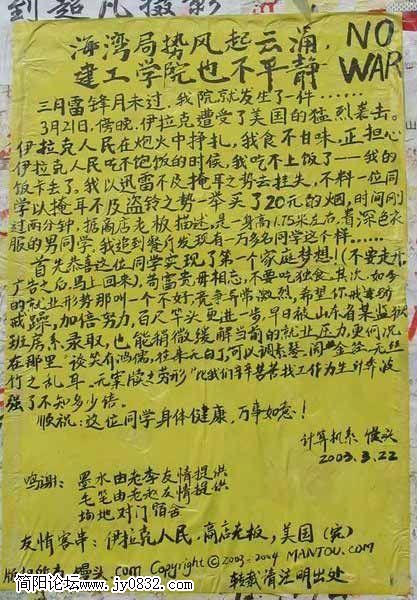 到超凡摄影
海湾局势风起云涌，
建工学院也不平静
NO
WAR
三月雷锋月未过，我院就发生了一件……
3月21日，傍晚，伊拉克遭受了美国的猛烈袭击。
伊拉克人民在炮火中挣扎，我食不甘味，正担心
伊拉克人民吃不饱饭的时候，我吃不上饭了——我的
饭卡丢了。我以迅雷不及掩耳之势去挂失，不料一位同
学以掩耳不及盗铃之势一举买了20元的烟，时间刚
过两分钟，据商店老板描述，是一身高1.75米左右，着深色衣
服的男同学，我追到餐厅发现有一万多名同学这个样……
首先恭喜这位同学实现了第一个家庭梦想！（不要走开，
广告之后，马上回来），苟富贵毋相忘，不要吃独食。其次，如今
的就业形势那叫一个不好，竞争异常激烈，希望你戒骄
戒躁，加倍努力，百尺竿头更进一步，早日被山东省某监狱
班房系录取，也能稍微缓解当前的就业压力，更何况
在那里“谈笑有鸿儒，往来无白丁，可以调素琴，阅金经，无丝
竹之乱耳，无案牍之劳形”比我们辛辛苦苦找工作为生计奔波
强了不知多少倍。
顺祝：这位同学身体健康，万事如意！
计算机系 馒头
2003.3.22
鸣谢：墨水由老李友情提供
毛笔由老赵友情提供
场地对门宿舍
友情客串：伊拉克人民，商店老板，美国（完）
版权所有 馒头.com Copyright © 2003-2004 MANTOU.COM
转载请注明出处
简阳论坛 www.jy0832.com